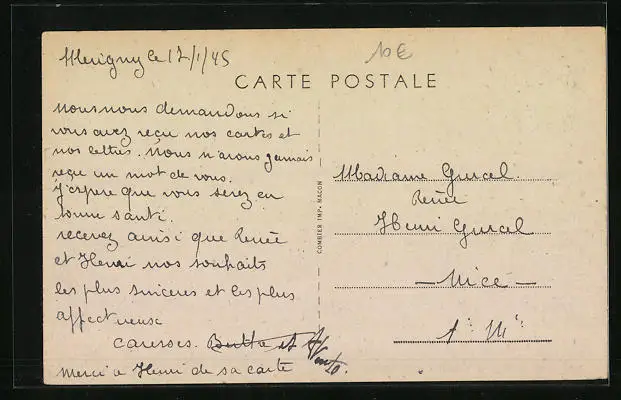 Merigny le 17/1/45
10 €
CARTE POSTALE
nous nous demandons si
vous avez reçu nos cartes et
nos lettres. Nous n'avons jamais
reçu un mot de vous.
j'espere que vous serez en
bonne santé.
recevez ainsi que Renée
et Henri nos souhaits
les plus sinceres et les plus
affectueuse
caresses. et
Merci a Henri de sa carte
COMBIER IMP. MACON
Madame Gurcel
Renée
Henri Gurcel
— Nice —
A. M.